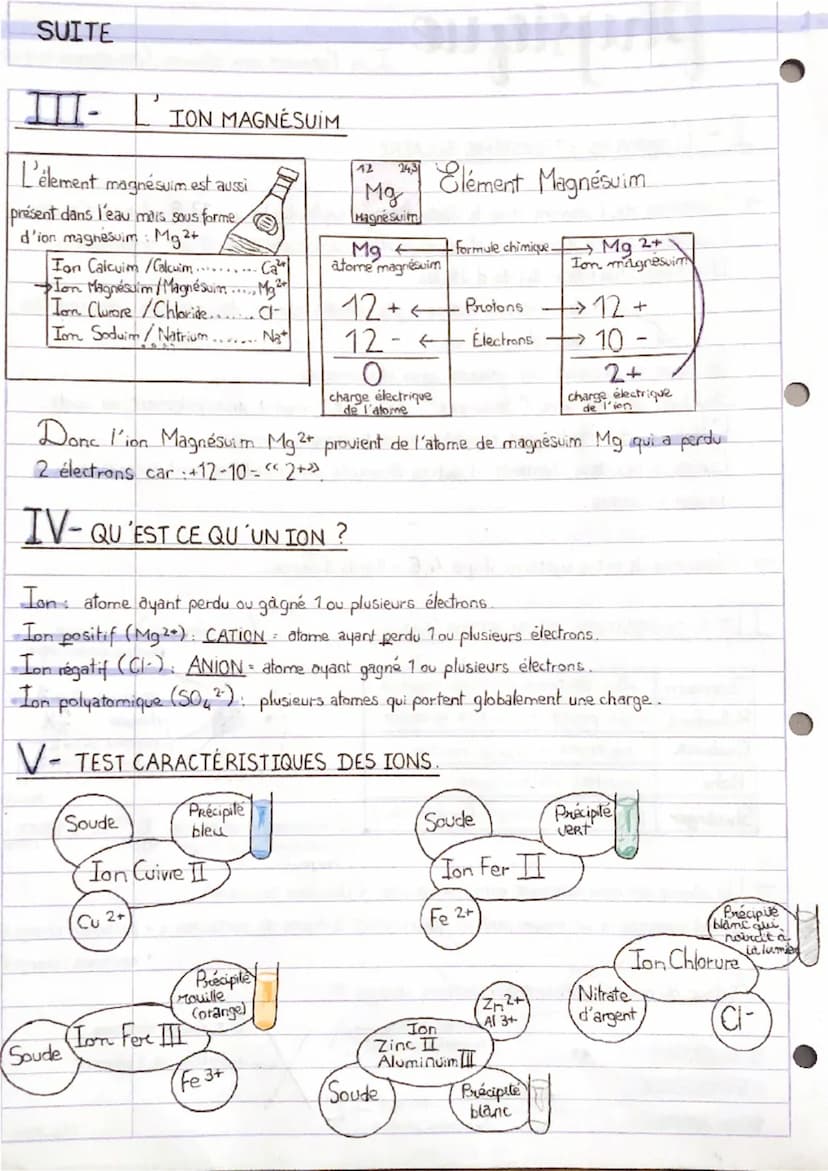 SUITE
III- L'ION MAGNÉSUIM
L'élement magnésuim est aussi
présent dans l'eau mais sous forme
d'ion magnésuim : Mg2+
Ion Calcuim / Calcuim .......... Ca2+
→ Ion Magnésuim/Magnésuim ..... Mg2+
Ion Clurore / Chloride ....... Cl-
Ion Soduim / Natrium ....... Na+
12 24,3
Mg
Magnésuim
Elément Magnésuim
Mg ← Formule chimique → Mg 2+
atome magnésuim Ion magnésuim
12 + ← Protons → 12 +
12 - ← Électrons → 10 -
0 2+
charge électrique charge électrique
de l'atome de l'ion
Donc l'ion Magnésuim Mg2+ provient de l'atome de magnésuim Mg qui a perdu
2 électrons car : +12-10 = “ 2+».
IV- QU'EST CE QU'UN ION ?
Ion : atome ayant perdu ou gagné 1 ou plusieurs électrons.
Ion positif (Mg2+) : CATION = atome ayant perdu 1 ou plusieurs électrons.
Ion négatif (Cl-) : ANION = atome ayant gagné 1 ou plusieurs électrons.
Ion polyatomique (SO4 2-) : plusieurs atomes qui portent globalement une charge.
V- TEST CARACTÉRISTIQUES DES IONS.
Soude
Précipité
bleu
Ion Cuivre II
Cu 2+
Soude
Précipité
vert
Ion Fer II
Fe 2+
Précipité
blanc qui
noircit à
la lumière
Ion Chlorure
Nitrate
d'argent
Cl-
Précipité
rouille
(orange)
Ion Fer III
Soude
Fe 3+
Zn 2+
Al 3+
Ion
Zinc II
Aluminuim III
Soude
Précipité
blanc